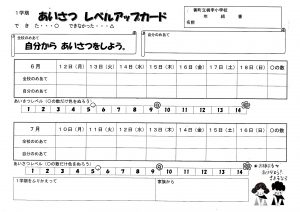 1学期 あいさつ レベルアップカード
できた・・・○ できなかった・・・△
小学校
年 組 番
名前
全校のめあて
自分から あいさつをしよう。
自分のめあて
6月 12日(月) 13日(火) 14日(水) 15日(木) 16日(金) 17日(土) 18日(日) ○の数
全校のめあて
自分のめあて
あいさつレベル(○の数だけ色をぬろう)
1 2 3 4 5 6 7 8 9 10 11 12 13 14
7月 10日(月) 11日(火) 12日(水) 13日(木) 14日(金) 15日(土) 16日(日) ○の数
全校のめあて
自分のめあて
あいさつレベル(○の数だけ色をぬろう)
1 2 3 4 5 6 7 8 9 10 11 12 13 14
1学期をふりかえって 家族から